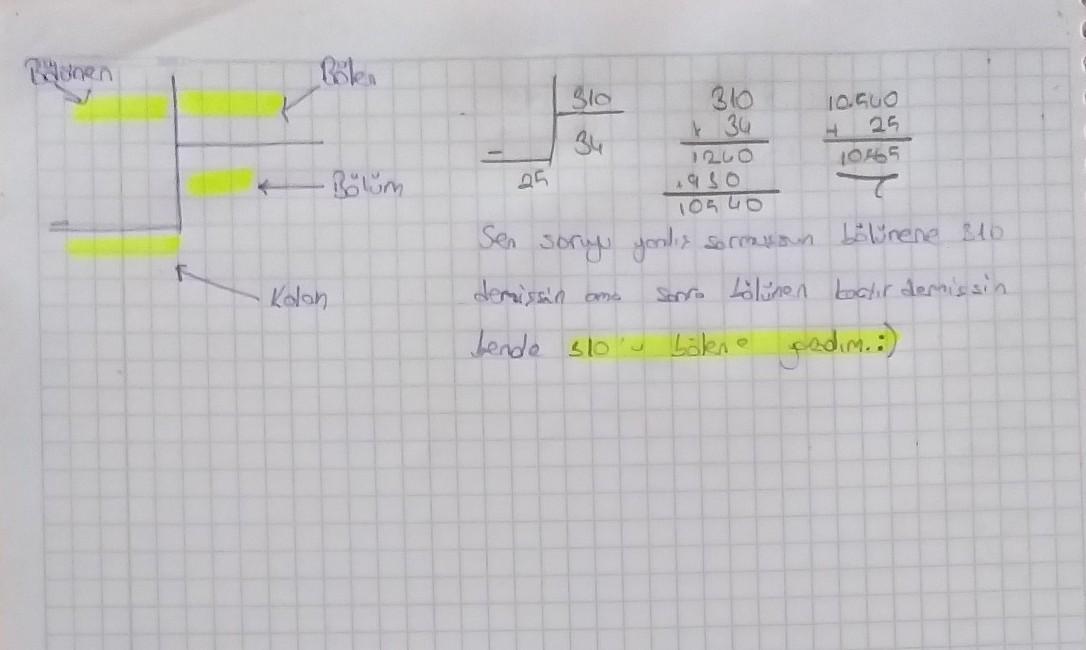 Bölünen
Bölen
Bölüm
Kalan
310
34
25
310
x 34
1240
930
10540
10.540
+ 25
10565
Sen soruyu yanlış sormuşsun bölünene 310
demişsin ama sonra bölünen kaçtır demişsin
bende 310'u bölene yazdım. :)